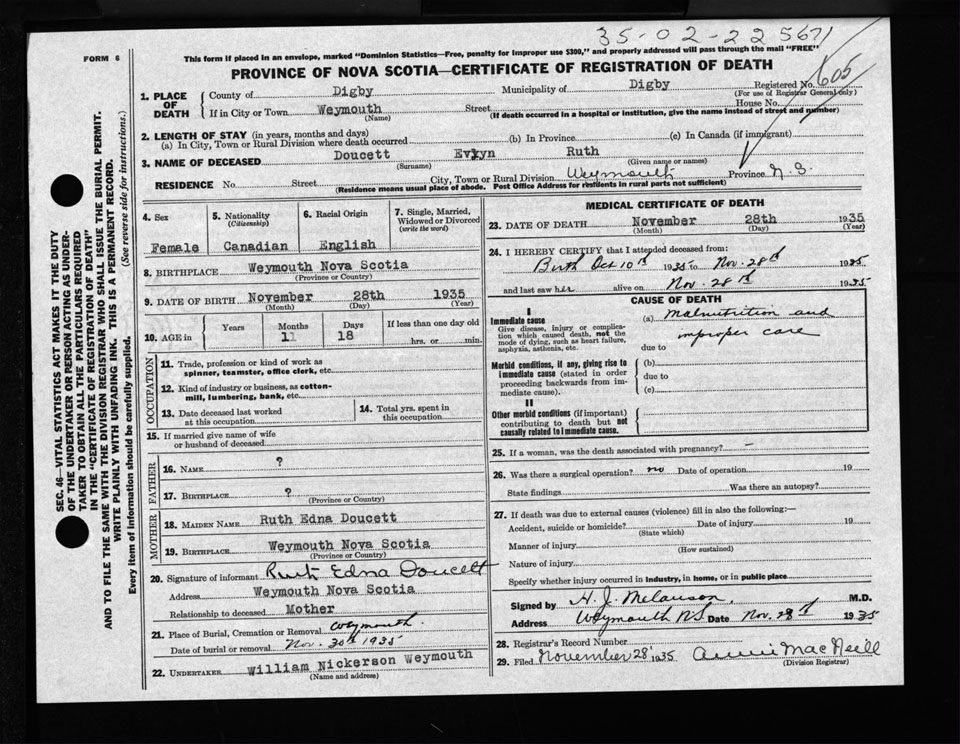 35-02-225671
FORM 6
This form if placed in an envelope, marked "Dominion Statistics—Free, penalty for improper use $300," and properly addressed will pass through the mail "FREE"
PROVINCE OF NOVA SCOTIA—CERTIFICATE OF REGISTRATION OF DEATH
605
SEC. 46—VITAL STATISTICS ACT MAKES IT THE DUTY
OF THE UNDERTAKER OR PERSON ACTING AS UNDER-
TAKER TO OBTAIN ALL THE PARTICULARS REQUIRED
IN THE "CERTIFICATE OF REGISTRATION OF DEATH"
AND TO FILE THE SAME WITH THE DIVISION REGISTRAR WHO SHALL ISSUE THE BURIAL PERMIT.
WRITE PLAINLY WITH UNFADING INK. THIS IS A PERMANENT RECORD.
Every item of information should be carefully supplied. (See reverse side for instructions.)
1. PLACE OF DEATH
County of Digby Municipality of Digby Registered No.
(For use of Registrar General only)
If in City or Town Weymouth Street House No.
(Name) (If death occurred in a hospital or institution, give the name instead of street and number)
2. LENGTH OF STAY (in years, months and days)
(a) In City, Town or Rural Division where death occurred (b) In Province (c) In Canada (if immigrant)
3. NAME OF DECEASED Doucett Evlyn Ruth
(Surname) (Given name or names)
RESIDENCE No. Street City, Town or Rural Division Weymouth Province N.S.
(Residence means usual place of abode. Post Office Address for residents in rural parts not sufficient)
4. Sex
Female
5. Nationality
(Citizenship)
Canadian
6. Racial Origin
English
7. Single, Married,
Widowed or Divorced
(write the word)
8. BIRTHPLACE Weymouth Nova Scotia
(Province or Country)
9. DATE OF BIRTH November 28th 1935
(Month) (Day) (Year)
10. AGE in
Years
Months
11
Days
18
If less than one day old
hrs. or min.
OCCUPATION
11. Trade, profession or kind of work as
spinner, teamster, office clerk, etc.
12. Kind of industry or business, as cotton-
mill, lumbering, bank, etc.
13. Date deceased last worked
at this occupation
14. Total yrs. spent in
this occupation
15. If married give name of wife
or husband of deceased
FATHER
16. NAME ?
17. BIRTHPLACE ?
(Province or Country)
MOTHER
18. MAIDEN NAME Ruth Edna Doucett
19. BIRTHPLACE Weymouth Nova Scotia
(Province or Country)
20. Signature of informant Ruth Edna Doucett
Address Weymouth Nova Scotia
Relationship to deceased Mother
21. Place of Burial, Cremation or Removal Weymouth.
Date of burial or removal Nov. 30th 1935
22. UNDERTAKER William Nickerson Weymouth
(Name and address)
MEDICAL CERTIFICATE OF DEATH
23. DATE OF DEATH November 28th 1935
(Month) (Day) (Year)
24. I HEREBY CERTIFY that I attended deceased from:
Birth Oct 10th 1935 to Nov. 28th 1935
and last saw her alive on Nov. 28th 1935
CAUSE OF DEATH
I
Immediate cause
Give disease, injury or complica-
tion which caused death, not the
mode of dying, such as heart failure,
asphyxia, asthenia, etc.
(a) Malnutrition and
improper care
due to
Morbid conditions, if any, giving rise to
immediate cause (stated in order
proceeding backwards from im-
mediate cause).
(b)
due to
(c)
II
Other morbid conditions (if important)
contributing to death but not
causally related to immediate cause.
25. If a woman, was the death associated with pregnancy? –
26. Was there a surgical operation? no Date of operation 19
State findings Was there an autopsy?
27. If death was due to external causes (violence) fill in also the following:—
Accident, suicide or homicide? Date of injury 19
(State which)
Manner of injury
(How sustained)
Nature of injury
Specify whether injury occurred in industry, in home, or in public place
Signed by H. J. M.D.
Address Weymouth N.S. Date Nov. 28th 1935
28. Registrar's Record Number
29. Filed November 28 1935 Annie MacNeill
(Division Registrar)